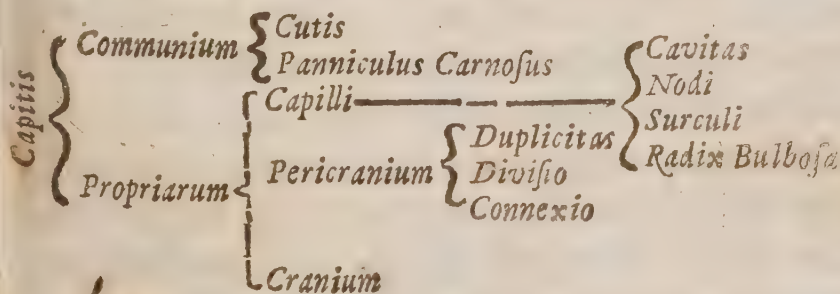 Capitis
Communium
Cutis
Panniculus Carnoſus
Propriarum
Capilli
Cavitas
Nodi
Surculi
Radix Bulboſa
Pericranium
Duplicitas
Diviſio
Connexio
Cranium